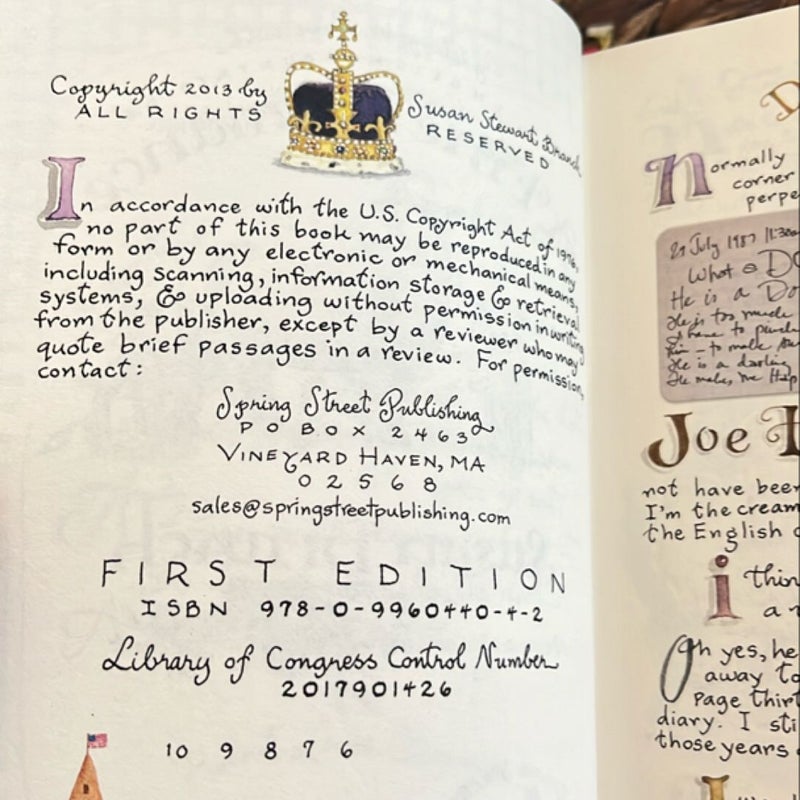 Copyright 2013 by
ALL RIGHTS
Susan Stewart Branch
RESERVED
In accordance with the U.S. Copyright Act of 1976,
no part of this book may be reproduced in any
form or by any electronic or mechanical means,
including scanning, information storage & retrieval
systems, & uploading without permission in writing
from the publisher, except by a reviewer who may
quote brief passages in a review. For permission,
contact:
Spring Street Publishing
PO BOX 2463
VINEYARD HAVEN, MA
02568
sales@springstreetpublishing.com
FIRST EDITION
ISBN 978-0-9960440-4-2
Library of Congress Control Number
2017901426
10 9 8 7 6
D
Normally
corner
perpe
21 July 1987 11:30am
What a DO
He is a Do
He is too much
I have to
him - to make
He is a darling
He makes me Hap
Joe H
not have been
I'm the cream
the English
i thin
a
Oh yes, he
away to
Page thirt
diary. I sti
those years
I